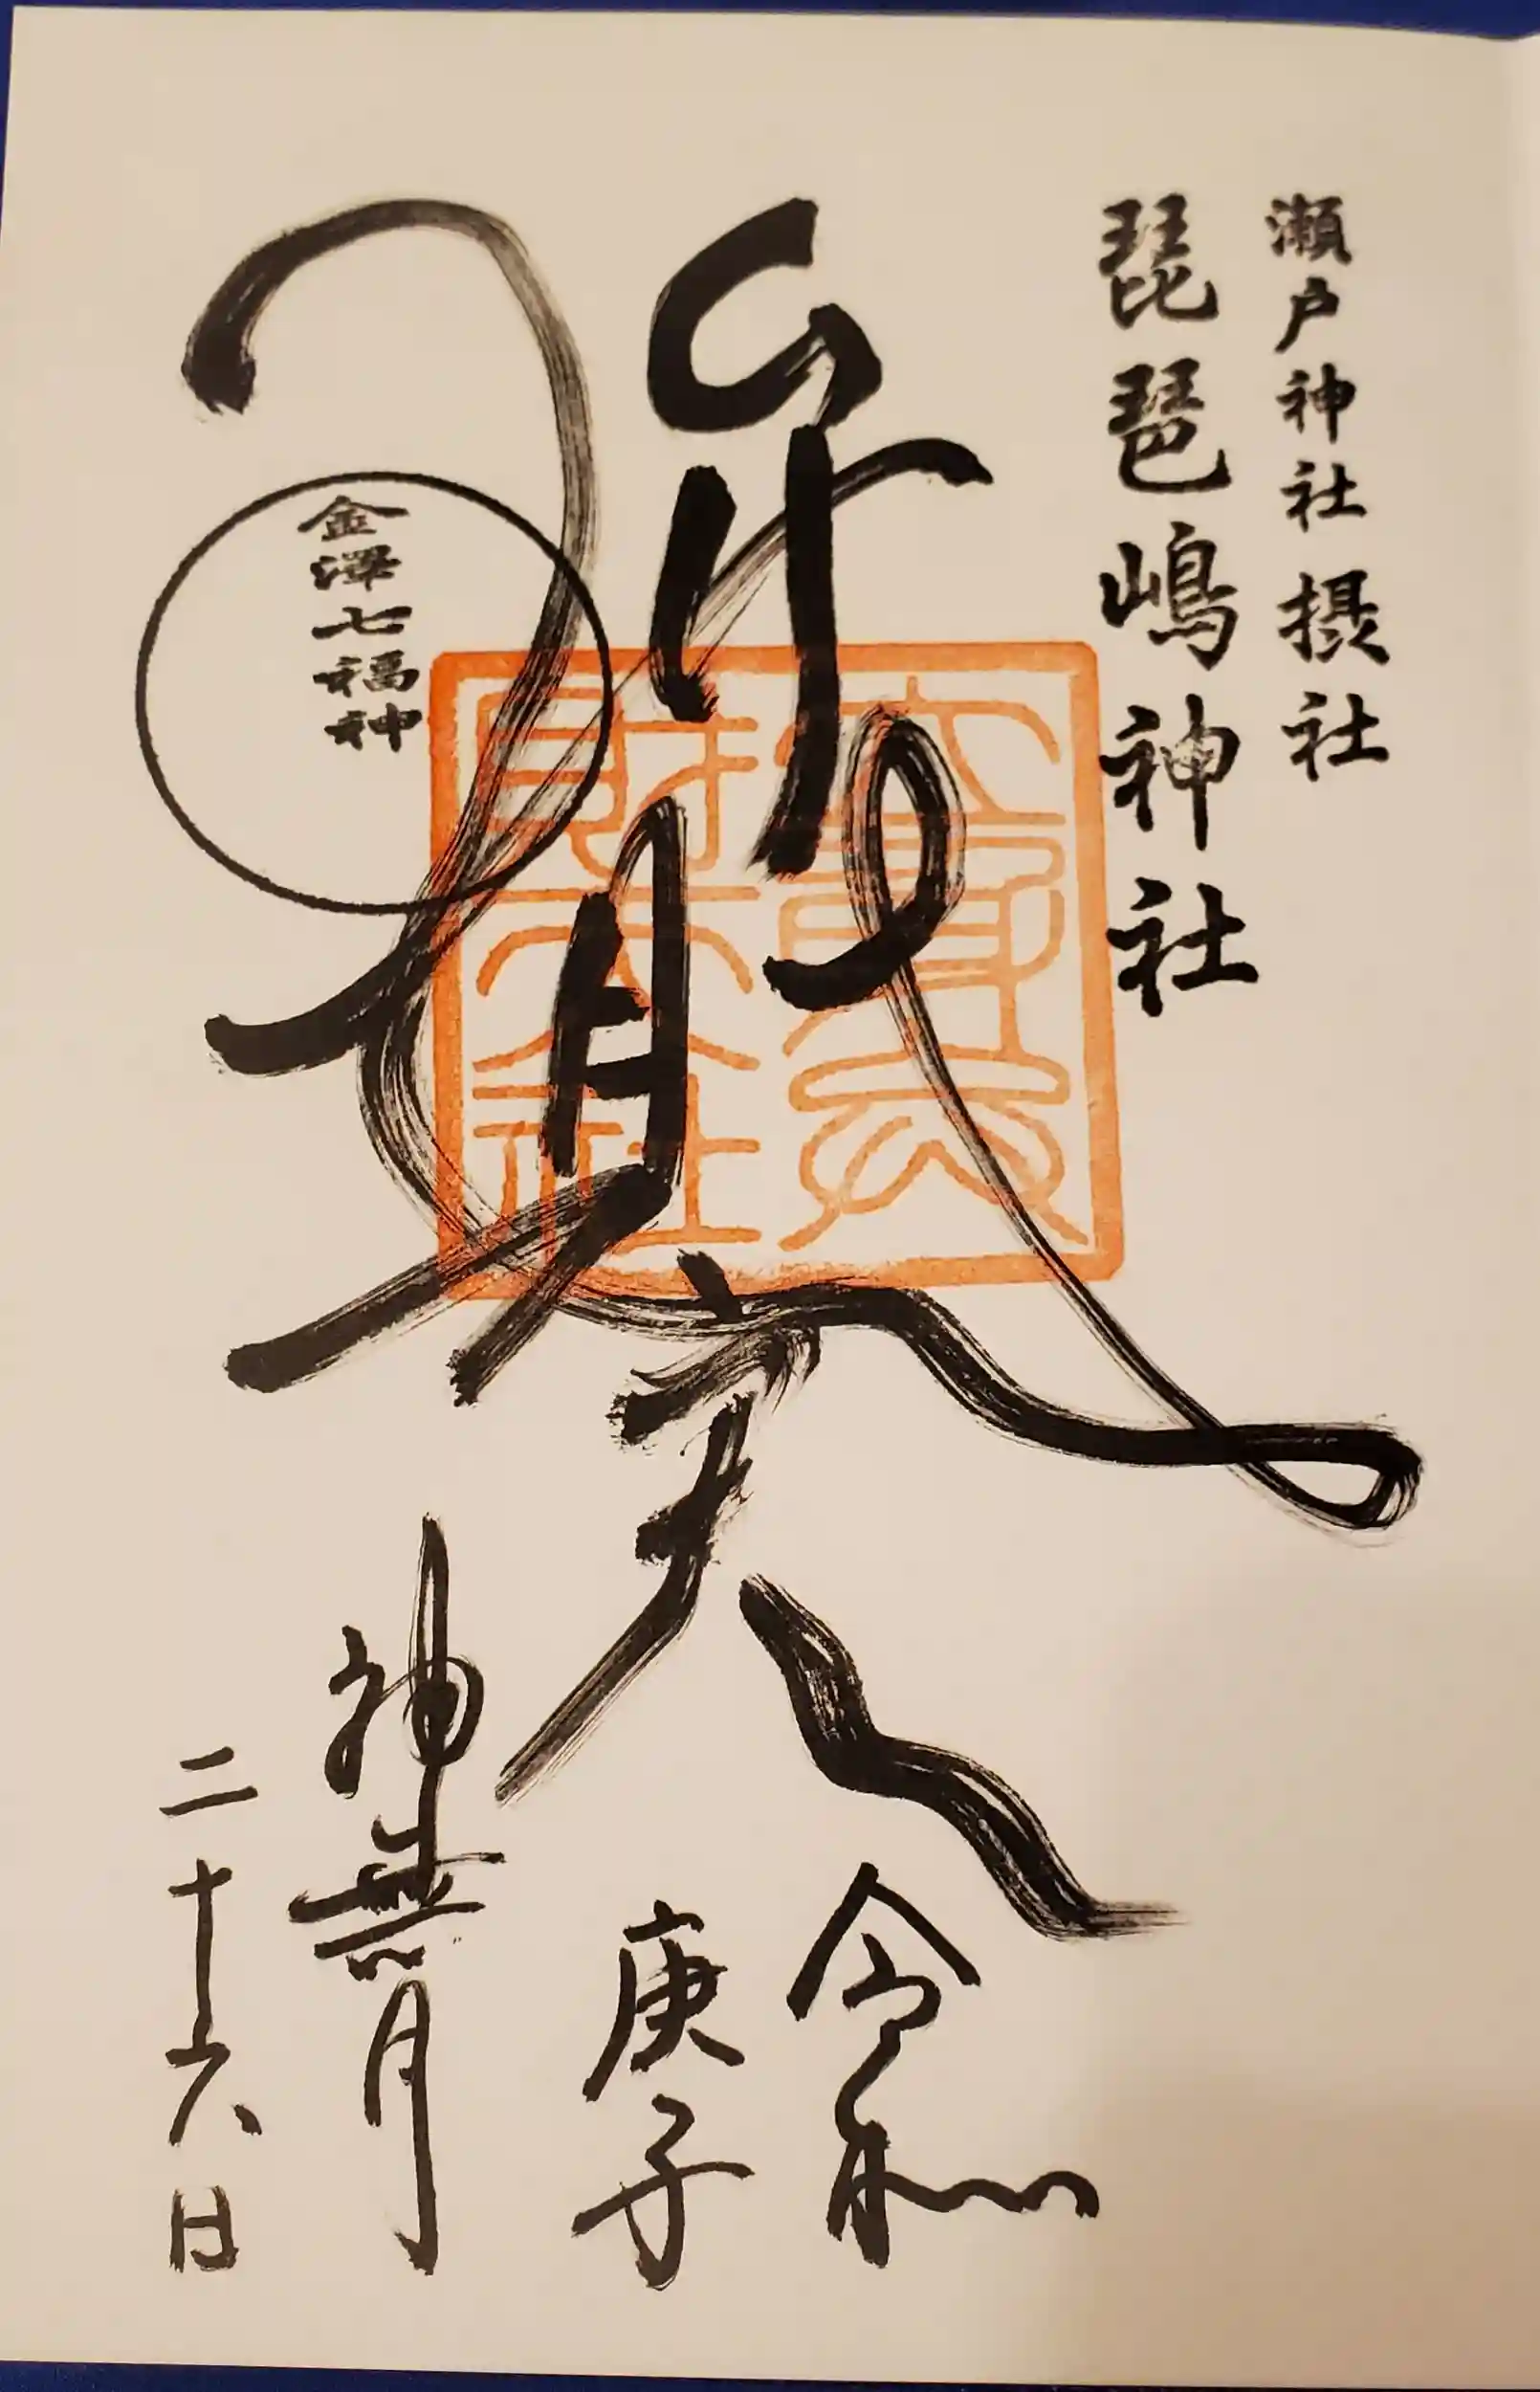 瀬戸神社 摂社
琵琶嶋神社
弁財天
立身弁
財天社
金澤七福神
令和
庚子
神無月
二十六日